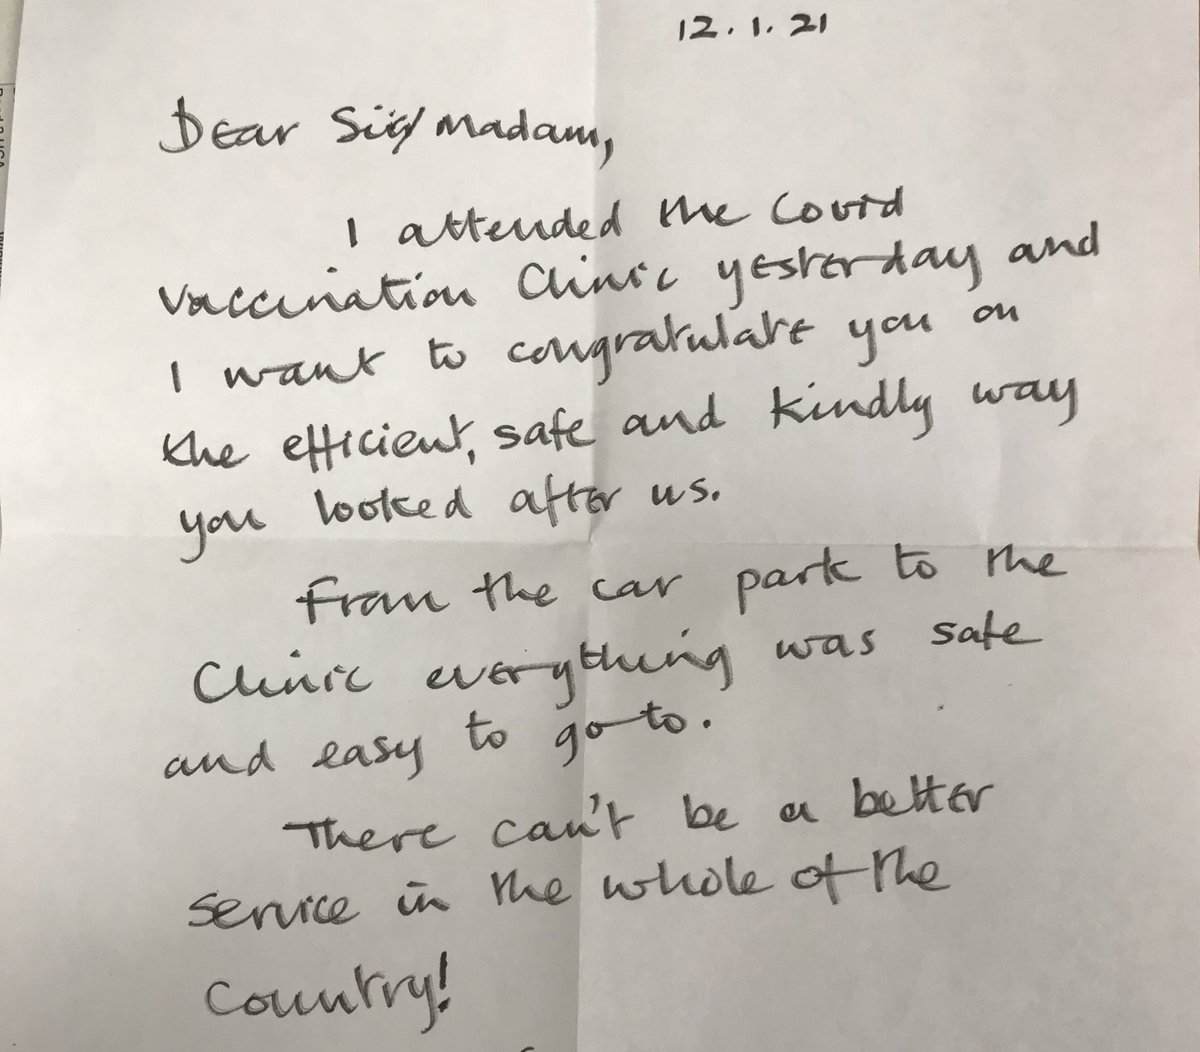 12.1.21
Dear Sir/Madam,
I attended the Covid
Vaccination Clinic yesterday and
I want to congratulate you on
the efficient, safe and kindly way
you looked after us.
From the car park to the
Clinic everything was safe
and easy to go to.
There can't be a better
service in the whole of the
Country!